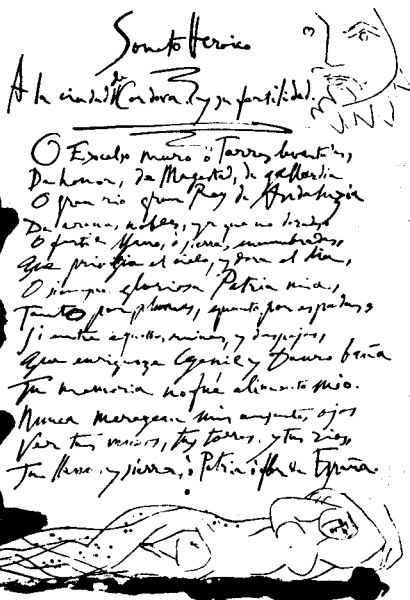 Soneto Heroico
A la ciudad de Cordova. y su fertilidad.
O Excelso muro o Torres levantadas,
De honor, de Magestad, de gallardia
O gran rio gran Rey de Andaluzia
De arenas nobles, ya que no doradas
O fertil llano, o sierras encumbradas,
Que privilegia el cielo, y dora el dia,
O siempre gloriosa Patria mia,
Tanto por plumas, quanto por espadas,
Si entre aquellas ruinas, y despojos,
Que enriqueze Genil y Dauro baña
Tu memoria no fué alimento mio.
Nunca merezcan mis ausentes ojos
Ver tus muros, tus torres, y tus rios,
Tu llano y sierra, o Patria o flor de España.